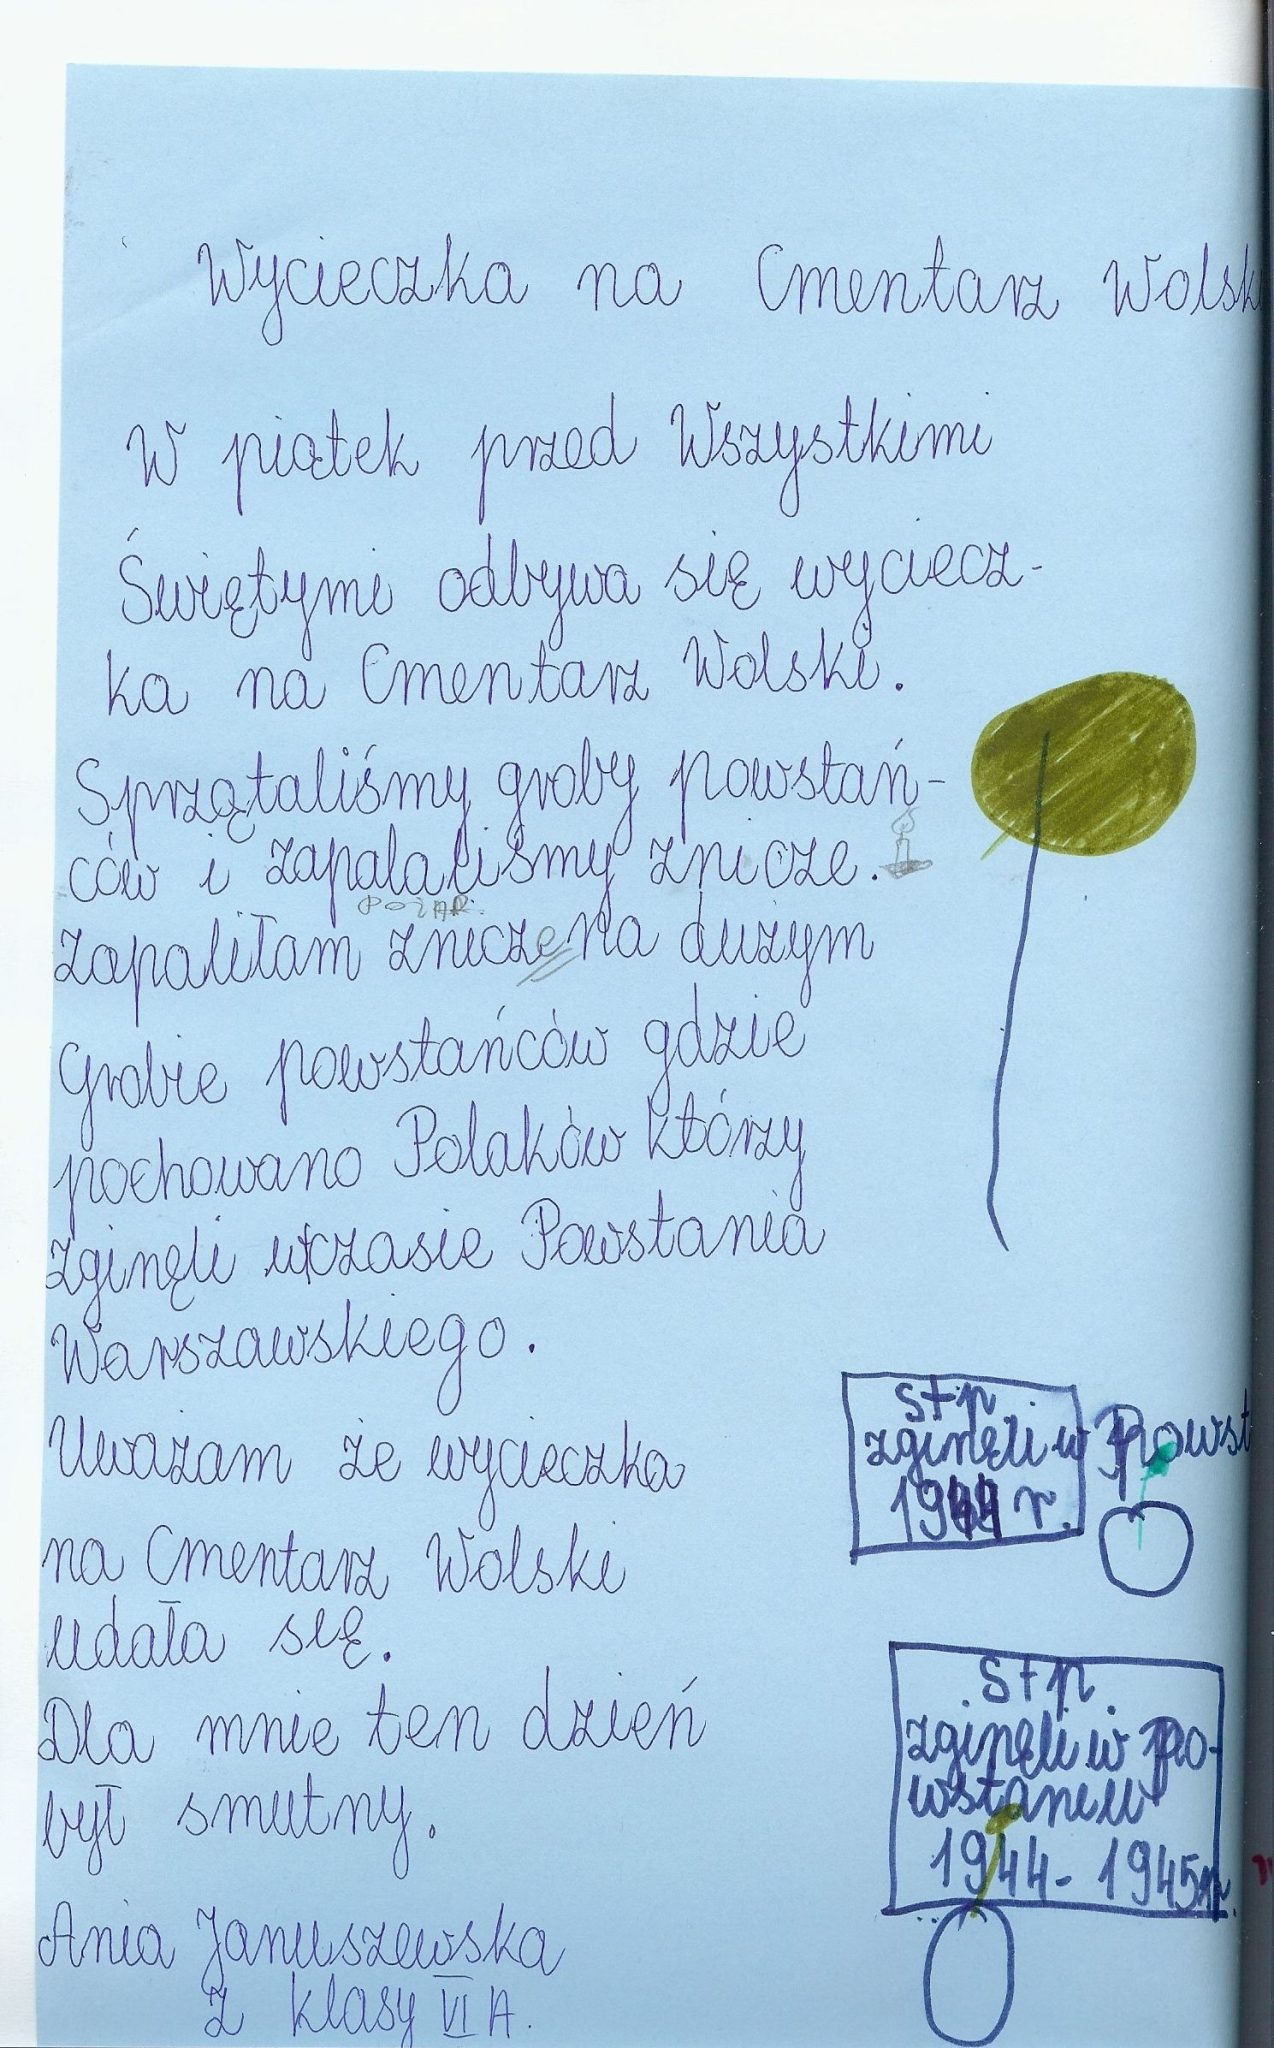 Wycieczka na Cmentarz Wolsk
W piątek przed Wszystkimi
Świętymi odbywa się wyciecz-
ka na Cmentarz Wolski.
Sprzątaliśmy groby powstań-
ców i zapalaliśmy znicze.
POŻAR.
Zapaliłam znicze na dużym
Grobie powstańców gdzie
pochowano Polaków którzy
zginęli wczasie Powstania
Warszawskiego.
Uważam że wycieczka
na Cmentarz Wolski
udała się.
Dla mnie ten dzień
był smutny.
Ania Januszewska
z klasy VI A.
S+p
zginęli w Powst
1944 r.
S+p.
zginęli w Po-
wstaniu
1944-1945r.